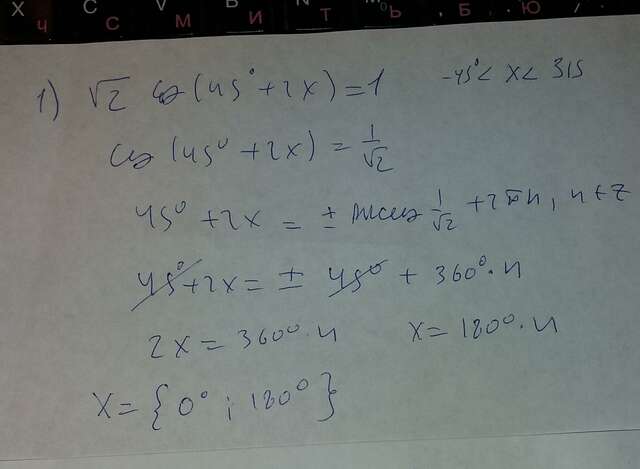 X C V B N M , . /
Ч С М И Т Ь Б Ю .
1) √2 cos(45° + 2x) = 1 -45° < x < 315
cos (45° + 2x) = 1/√2
45° + 2x = ± arccos 1/√2 + 2πn, n ∈ Z
45° + 2x = ± 45° + 360°·n
2x = 360°·n x = 180°·n
x = {0° ; 180°}